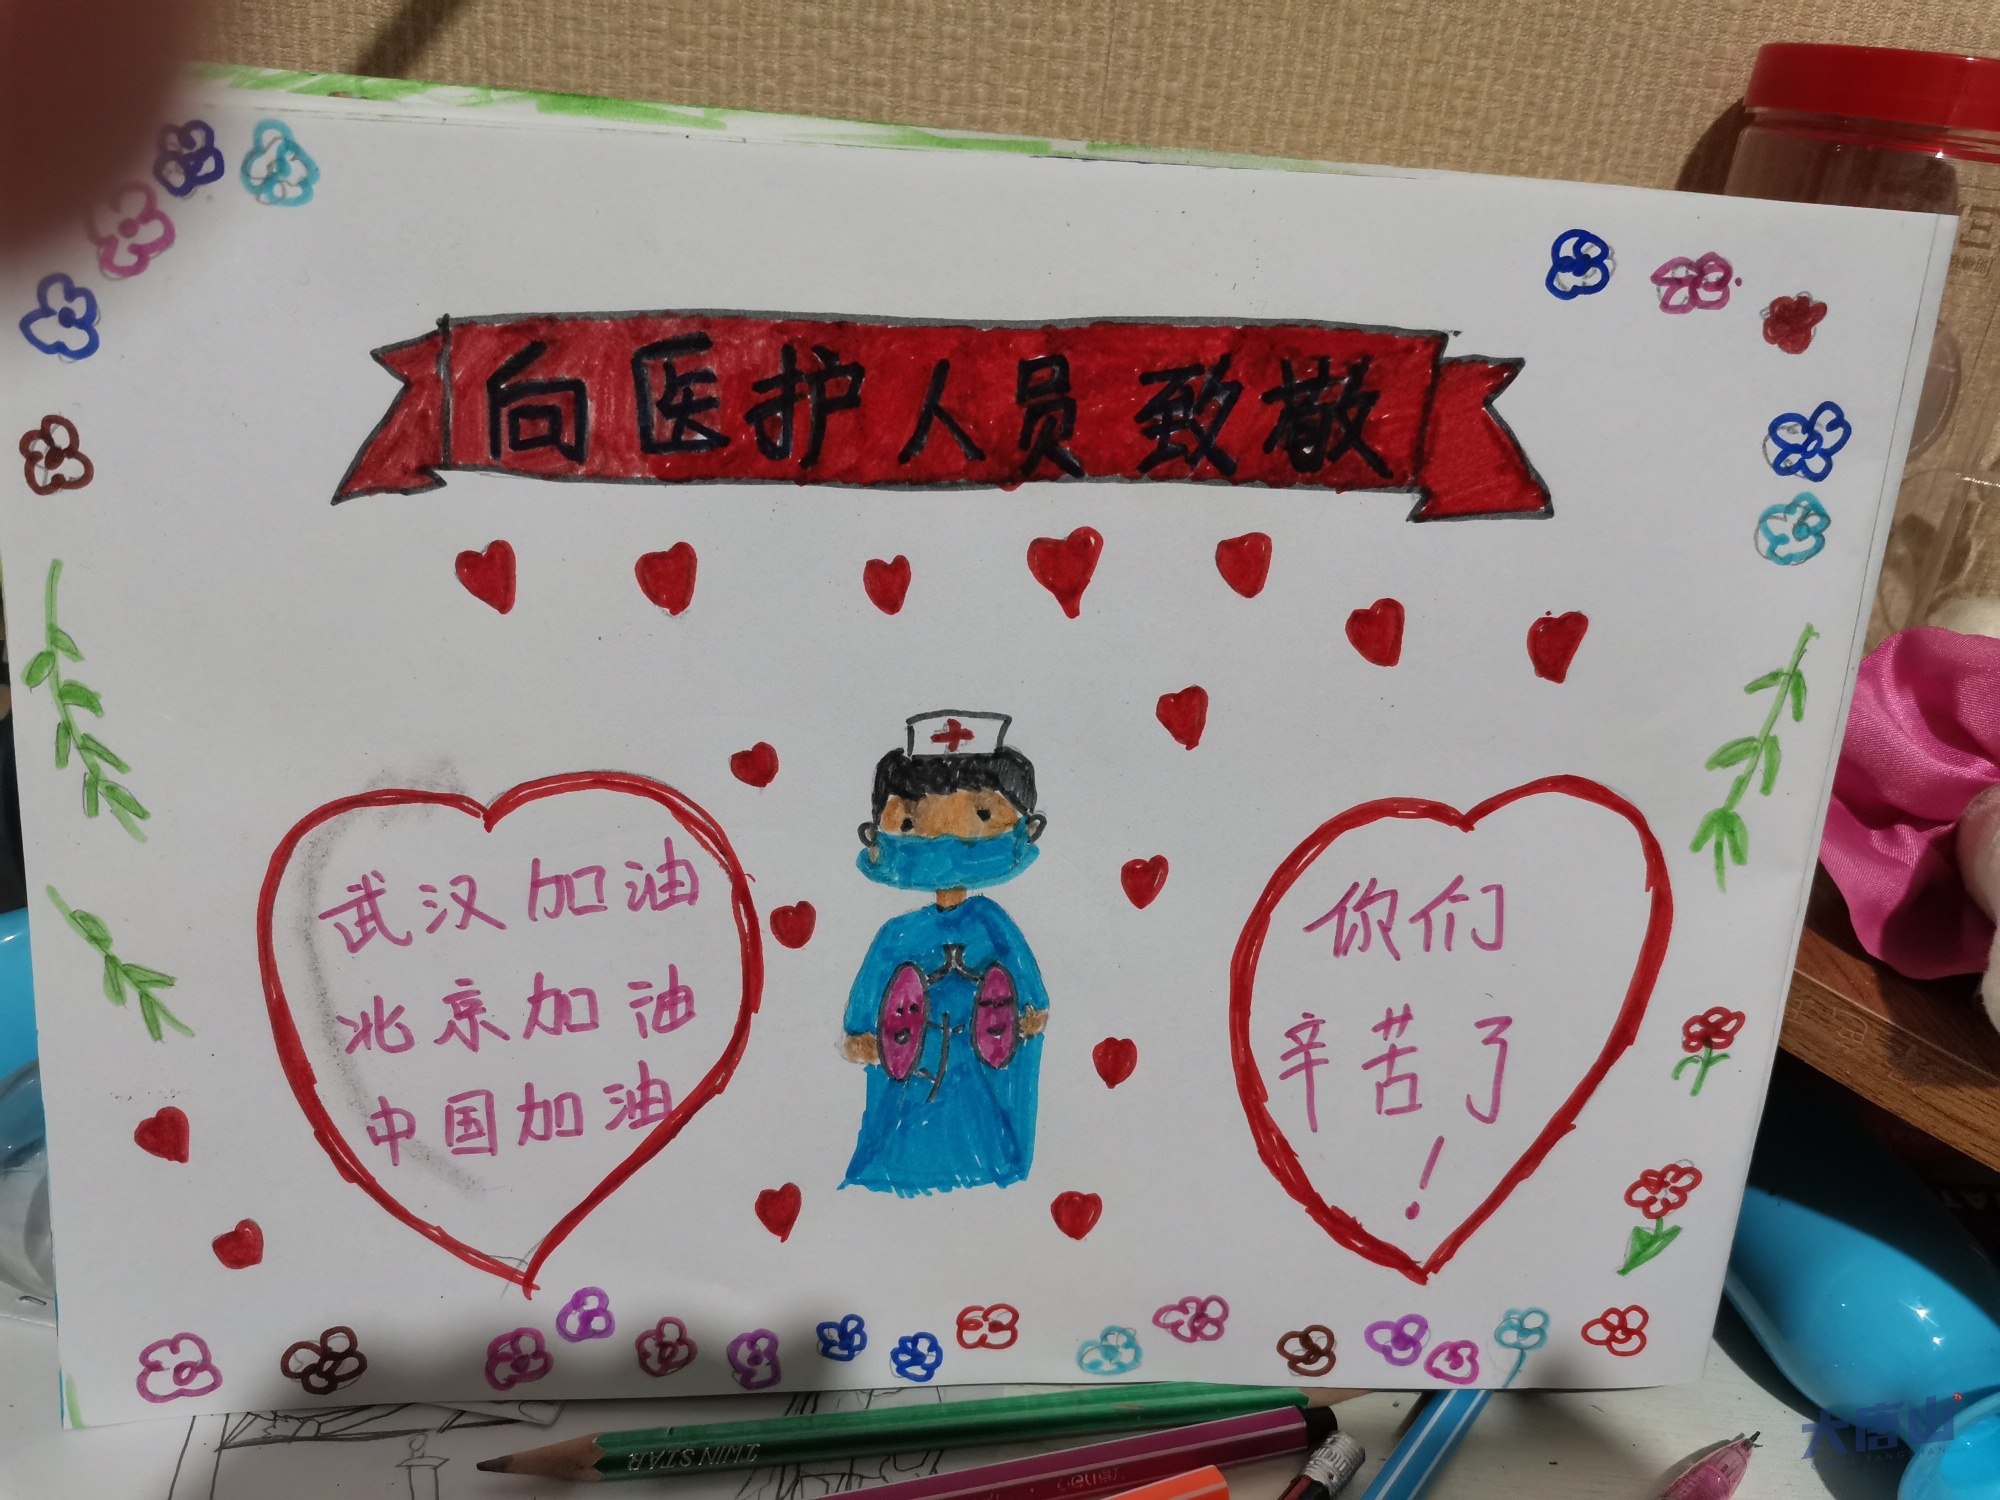 向医护人员致敬
武汉加油
北京加油
中国加油
你们
辛苦了
！
TWIN STAR
大唐山